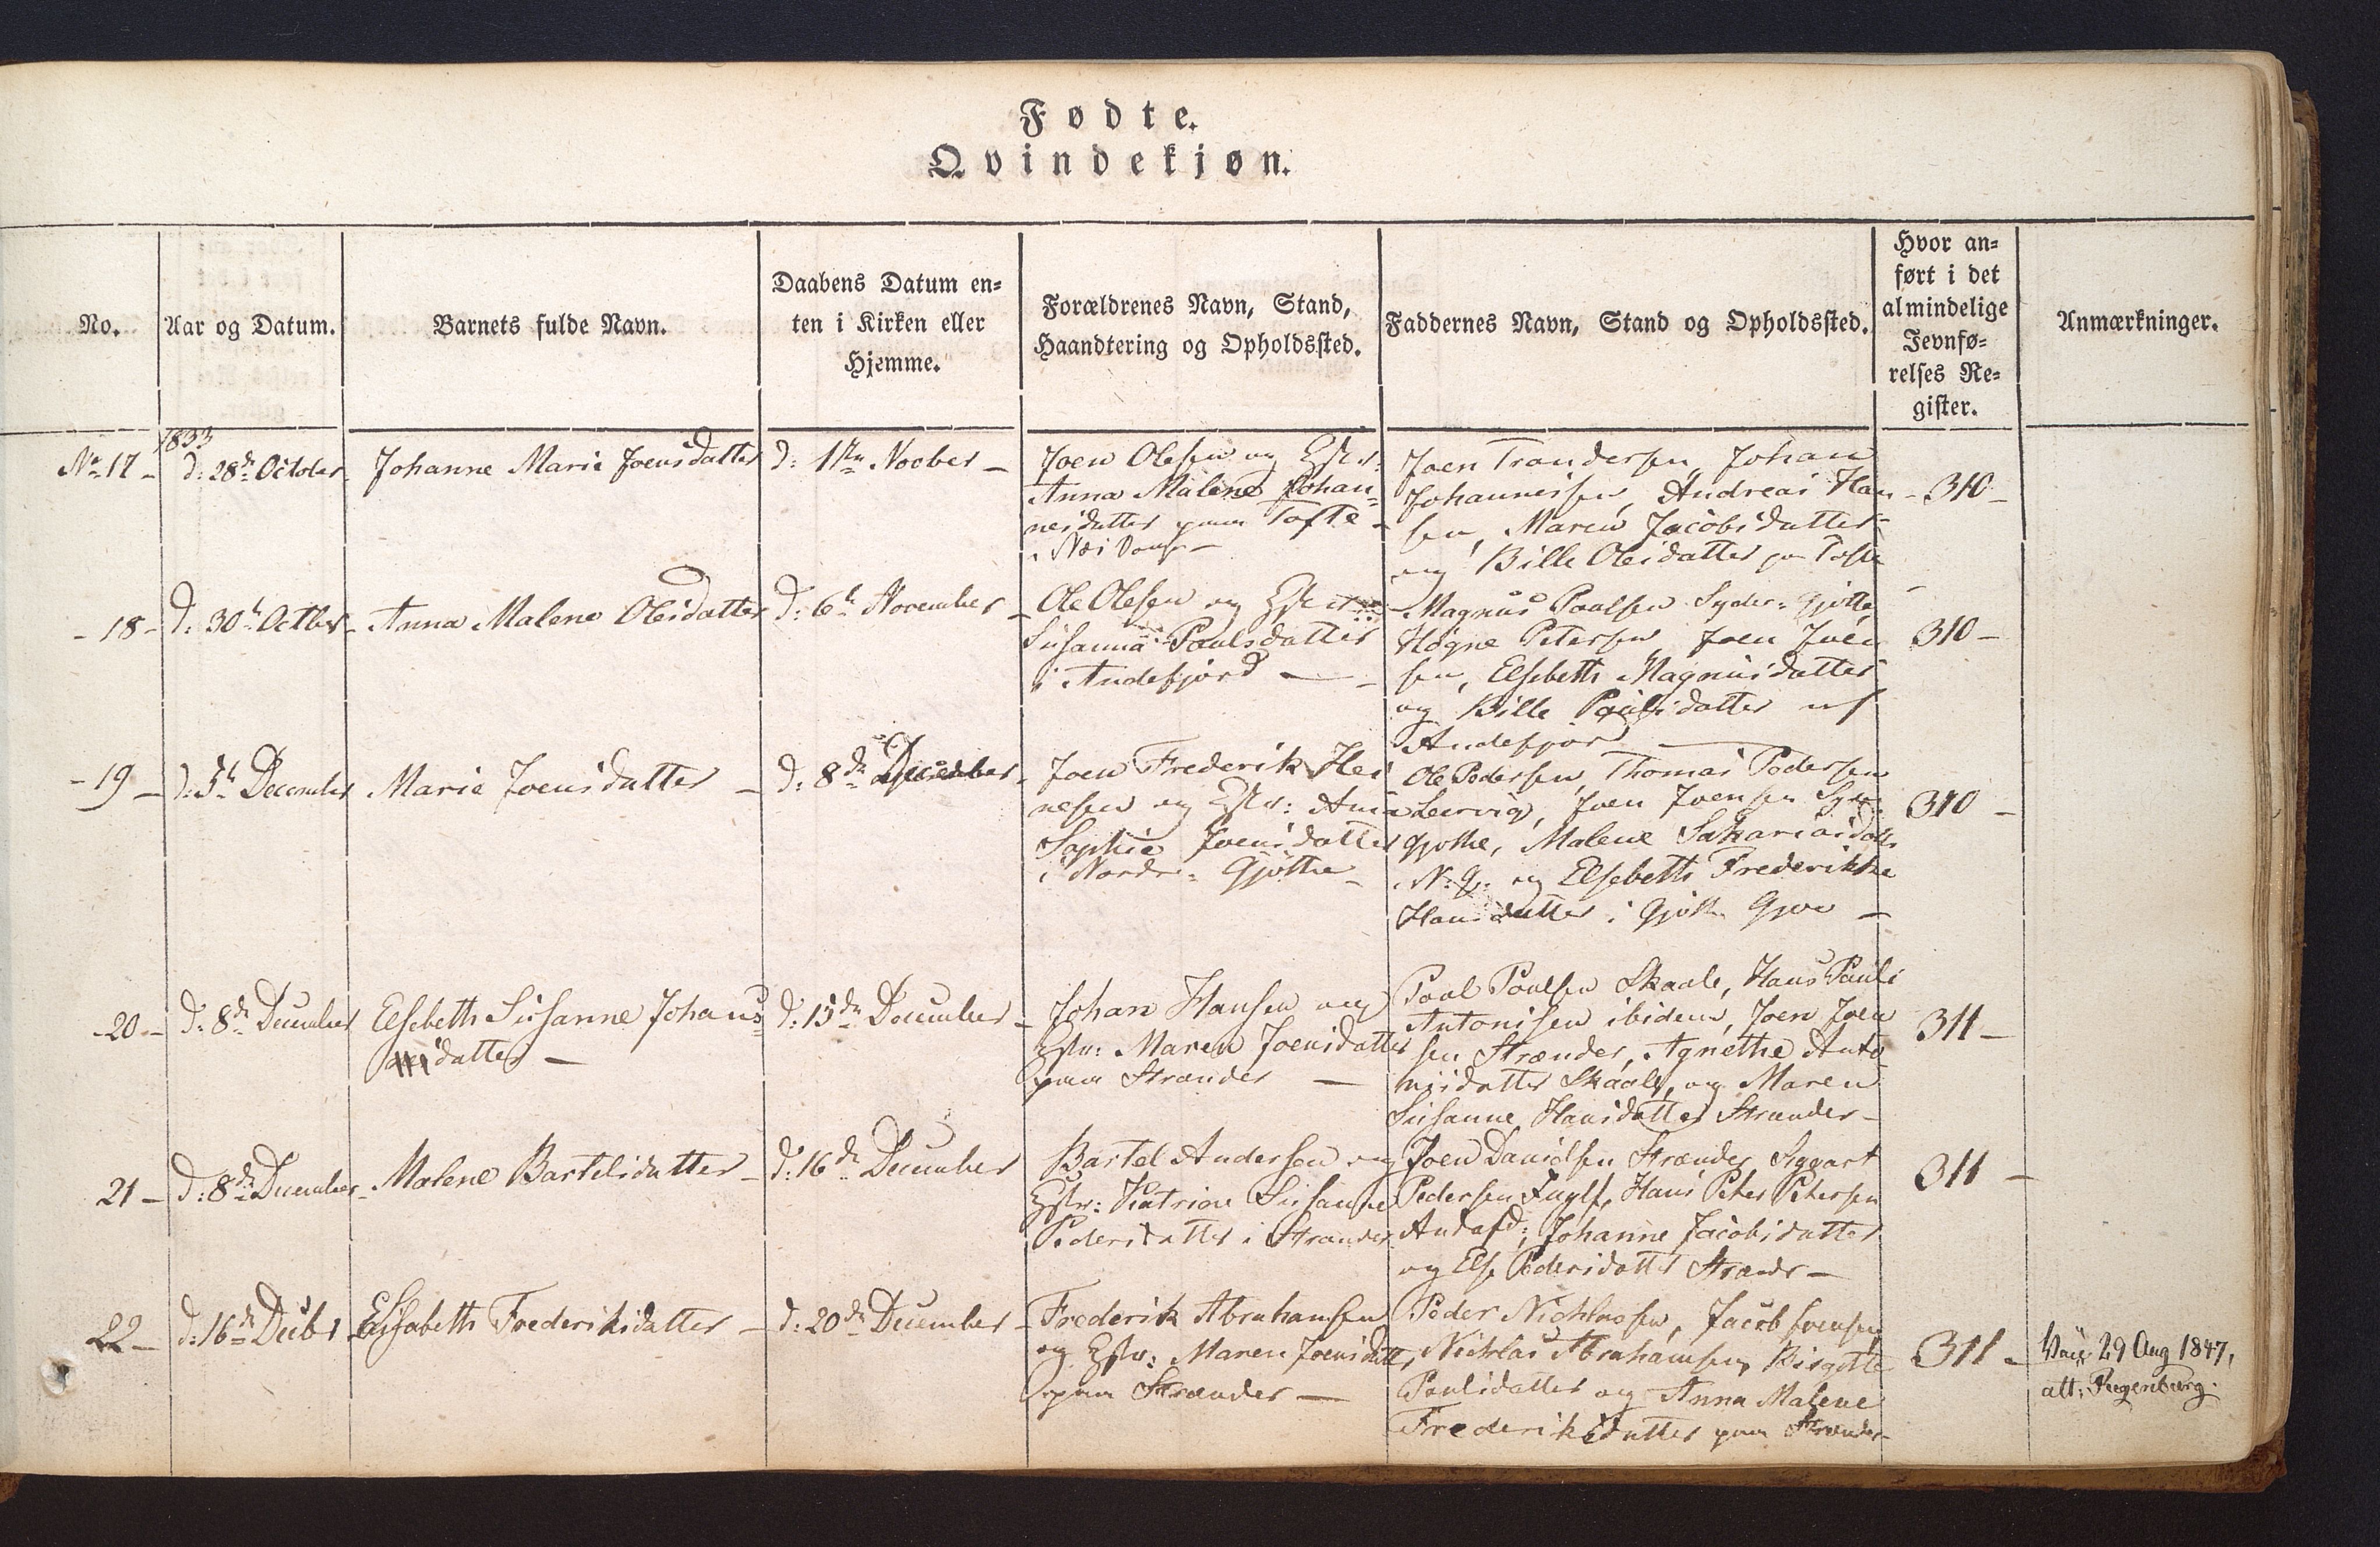 Fødte.
Qvindekjøn.
No.
Aar og Datum.
Barnets fulde Navn.
Daabens Datum en-
ten i Kirken eller
Hjemme.
Forældrenes Navn, Stand,
Haandtering og Opholdssted.
Faddernes Navn, Stand og Opholdssted.
Hvor an-
ført i det
almindelige
Jevnfø-
relses Re-
gister.
Anmærkninger.
1833
No 17 -
d: 28de October
Johanne Marie Joensdatter
d: 1ste Novber -
Joen Olesen og Hstr:
Anna Malene Johan-
nesdatter paa Tofte -
Joen Trondersen, Johan
Johannessen, Andreas Han
sen, Maren Jacobsdatter
og Bille Olesdatter Tofte
- 310 -
- 18 -
d: 30te Octber -
Anna Malene Olesdatter
d: 6te November -
Ole Olesen og Hstr:
Susanna Poulsdatter
i Andefjord -
Magnus Poulsen Syder: Gjotte,
Høgne Petersen, Joen Joen
sen, Elsebeth Magnusdatter
og Bille Poulsdatter af
Andefjor
310 -
- 19 -
d: 5te December
Marie Joensdatter -
d: 8de December -
Joen Frederik Hei
nesen og Hstr: Ana
Sophie Joensdatter
i Nordre: Gjøthe -
Ole Pedersen, Thomas Pedersen
Lervig, Joen Joensen Syd
Gjothe, Malene Sakariasdatt
N: G: og Elsebeth Frederikke
Hansdatter i Gjøth Gjov -
310 -
- 20 -
d: 8de December
Elsebeth Susanne Johans-
datter -
d: 15de December -
Johan Hansen og
Hstr: Maren Joensdatter
paa Strænder -
Poul Poulsen Skaale, Hans Pauli
Antonisen ibidem, Joen Joen
sen Strænder, Agnethe Anto
nisdatter Skaale, og Maren
Susanne Hansdatter Strænder -
311 -
21 -
d: 8de December -
Malene Bartelsdatter -
d: 16de December
Bartel Andersen og
Hstr: Katrine Susanne
Pedersdatter i Strænder
Joen Davidsen Strænder, Sygvart
Pedersen Fuglf, Hans Peter Petersen
Andafd; Johanne Jacobsdatter
og Else Pedersdatter Strændr -
311 -
22 -
d: 16de Decbr
Elisabeth Frederiksdatter -
d: 20de December -
Frederik Abrahamsen
og Hstr: Maren Joensdatt,
paa Strænder -
Peder Nichlasen, Jacob Joensen,
Nichlas Abrahamsen, Birgitte
Poulsdatter og Anna Malene
Frederiksdatter paa Strænder -
311 -
Vac: 29 Aug 1847,
att: Regenburg.